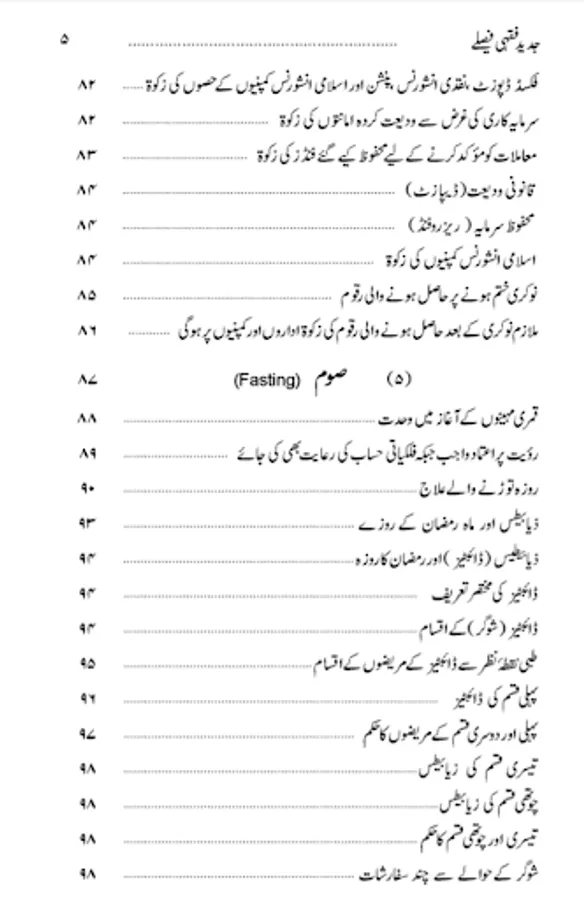 جدید فقہی فیصلے ........................................................ ۵
فکسڈ ڈپوزٹ، نقدی انشورنس، پنشن اور اسلامی انشورنس کمپنیوں کے حصوں کی زکوۃ ..... ۸۲
سرمایہ کاری کی غرض سے ودیعت کردہ امانتوں کی زکوۃ ........................ ۸۲
معاملات کو مؤکد کرنے کے لیے محفوظ کیے گئے فنڈز کی زکوۃ ........................ ۸۳
قانونی ودیعت (ڈیپازٹ) ........................ ۸۴
محفوظ سرمایہ (ریزروفنڈ) ........................ ۸۴
اسلامی انشورنس کمپنیوں کی زکوۃ ........................ ۸۴
نوکری ختم ہونے پر حاصل ہونے والی رقوم ........................ ۸۵
ملازم نوکری کے بعد حاصل ہونے والی رقوم کی زکوۃ اداروں اور کمپنیوں پر ہوگی ........... ۸۶
(۵) صوم (Fasting) ۸۷
قمری مہینوں کے آغاز میں وحدت ........................ ۸۸
رؤیت پر اعتماد واجب جبکہ فلکیاتی حساب کی رعایت بھی کی جائے ........................ ۸۹
روزہ توڑنے والے علاج ........................ ۹۰
ذیابطیس اور ماہ رمضان کے روزے ........................ ۹۳
ذیابطیس (ڈائبٹیز) اور رمضان کا روزہ ........................ ۹۴
ڈائبٹیز کی مختصر تعریف ........................ ۹۴
ڈائبٹیز (شوگر) کے اقسام ........................ ۹۴
طبی نقطۂ نظر سے ڈائبٹیز کے مریضوں کے اقسام ........................ ۹۵
پہلی قسم کی ڈائبٹیز ........................ ۹۶
پہلی اور دوسری قسم کے مریضوں کا حکم ........................ ۹۷
تیسری قسم کی زیابیطس ........................ ۹۸
چوتھی قسم کی زیابیطس ........................ ۹۸
تیسری اور چوتھی قسم کا حکم ........................ ۹۸
شوگر کے حوالے سے چند سفارشات ........................ ۹۸